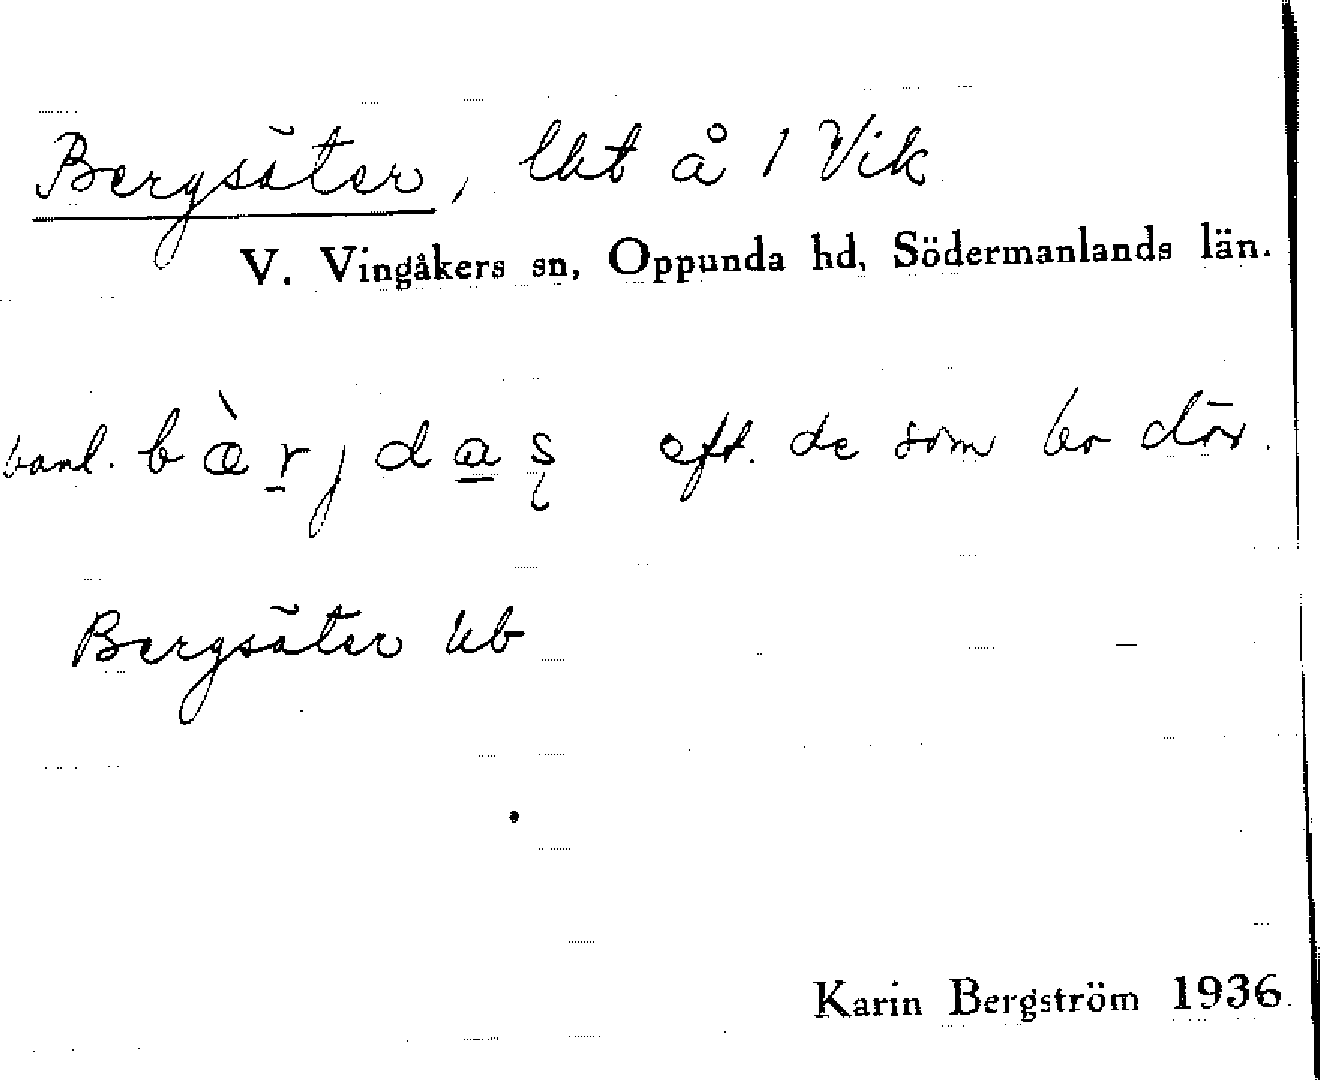 Bergsäter, lht å 1 Vik
V. Vingåkers sn, Oppunda hd, Södermanlands län.
vanl. bæ̀r̠jda̠s̨ eft. de som bo där.
Bergsäter kb
Karin Bergström 1936.